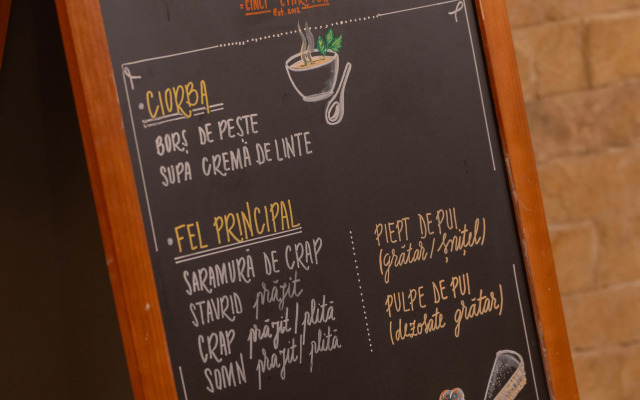 Est. 2012
CIORBA
BORȘ DE PEȘTE
SUPA CREMĂ DE LINTE
FEL PRINCIPAL
SARAMURĂ DE CRAP
STAVRID prăjit
CRAP prăjit/plită
SOMN prajit/plită
PIEPT DE PUI
(grătar/șnițel)
PULPE DE PUI
(dezosate grătar)